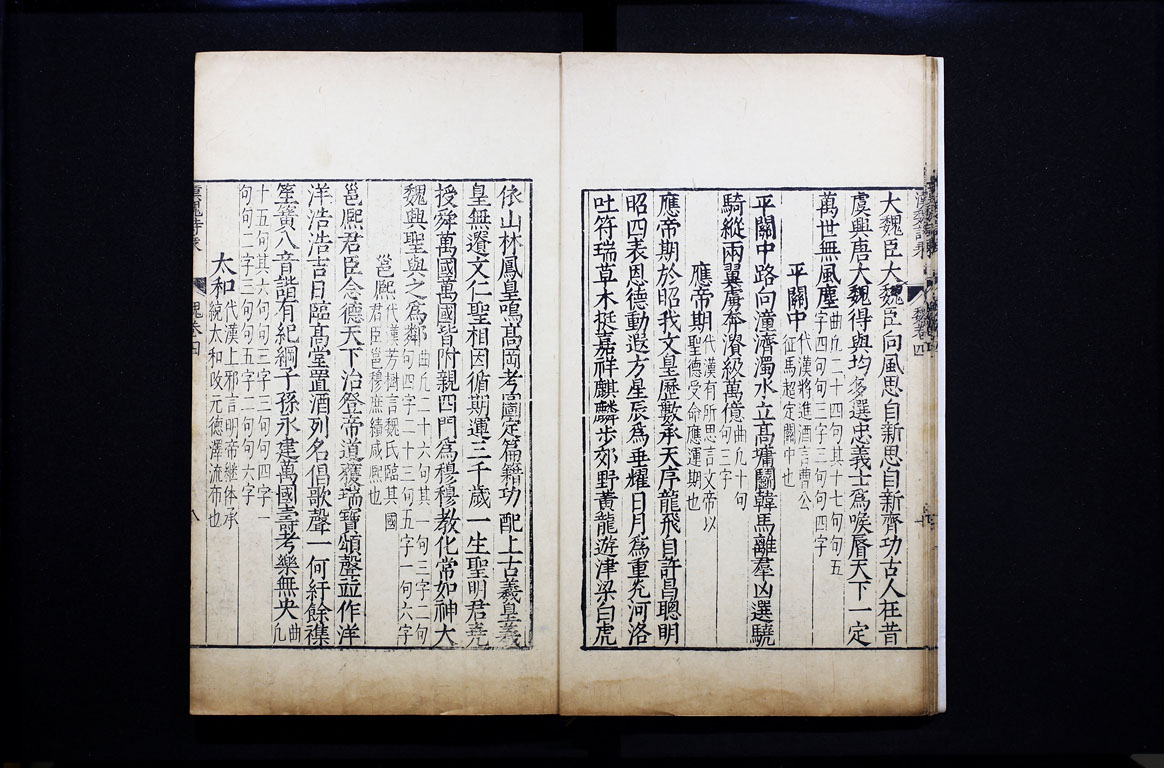 大魏臣大魏臣向風思自新思自新齊功古人在昔
虞與唐大魏得與均多選忠義士爲喉脣天下一定
萬世無風塵曲凢二十四句其十七句句五
字四句句三字三句句四字
平關中代漢將進酒言曹公
征馬超定關中也
平關中路向潼濟濁水立高墉鬬韓馬離羣凶選驍
騎縱兩翼虜奔潰級萬億曲凢十句
句三字
應帝期代漢有所思言文帝以
聖德受命應運期也
應帝期於昭我文皇歷數承天序龍飛自許昌聰明
昭四表恩德動遐方星辰爲垂耀日月爲重光河洛
吐符瑞草木挺嘉祥麒麟步郊野黃龍遊津梁白虎
依山林鳳皇鳴高岡考圖定篇籍功配上古羲皇羲
皇無遺文仁聖相因循期運三千歲一生聖明君堯
授舜萬國萬國皆附親四門爲穆穆教化常如神大
魏興聖與之爲鄰曲凢二十六句其一句三字二句
句四字二十三句五字一句六字
邕熙代漢芳樹言魏氏臨其國
君臣邕穆庶績咸熙也
邕熙君臣念德天下治登帝道獲瑞寶頌聲竝作洋
洋浩浩吉日臨高堂置酒列名倡歌聲一何紆餘雜
笙簧八音諧有紀綱子孫永建萬國壽考樂無央曲凢
十五句其六句句三字三句句四字一
句句二字三句句五字二句句六字
太和代漢上邪言明帝繼体承
統太和改元德澤流布也
魏卷四
八